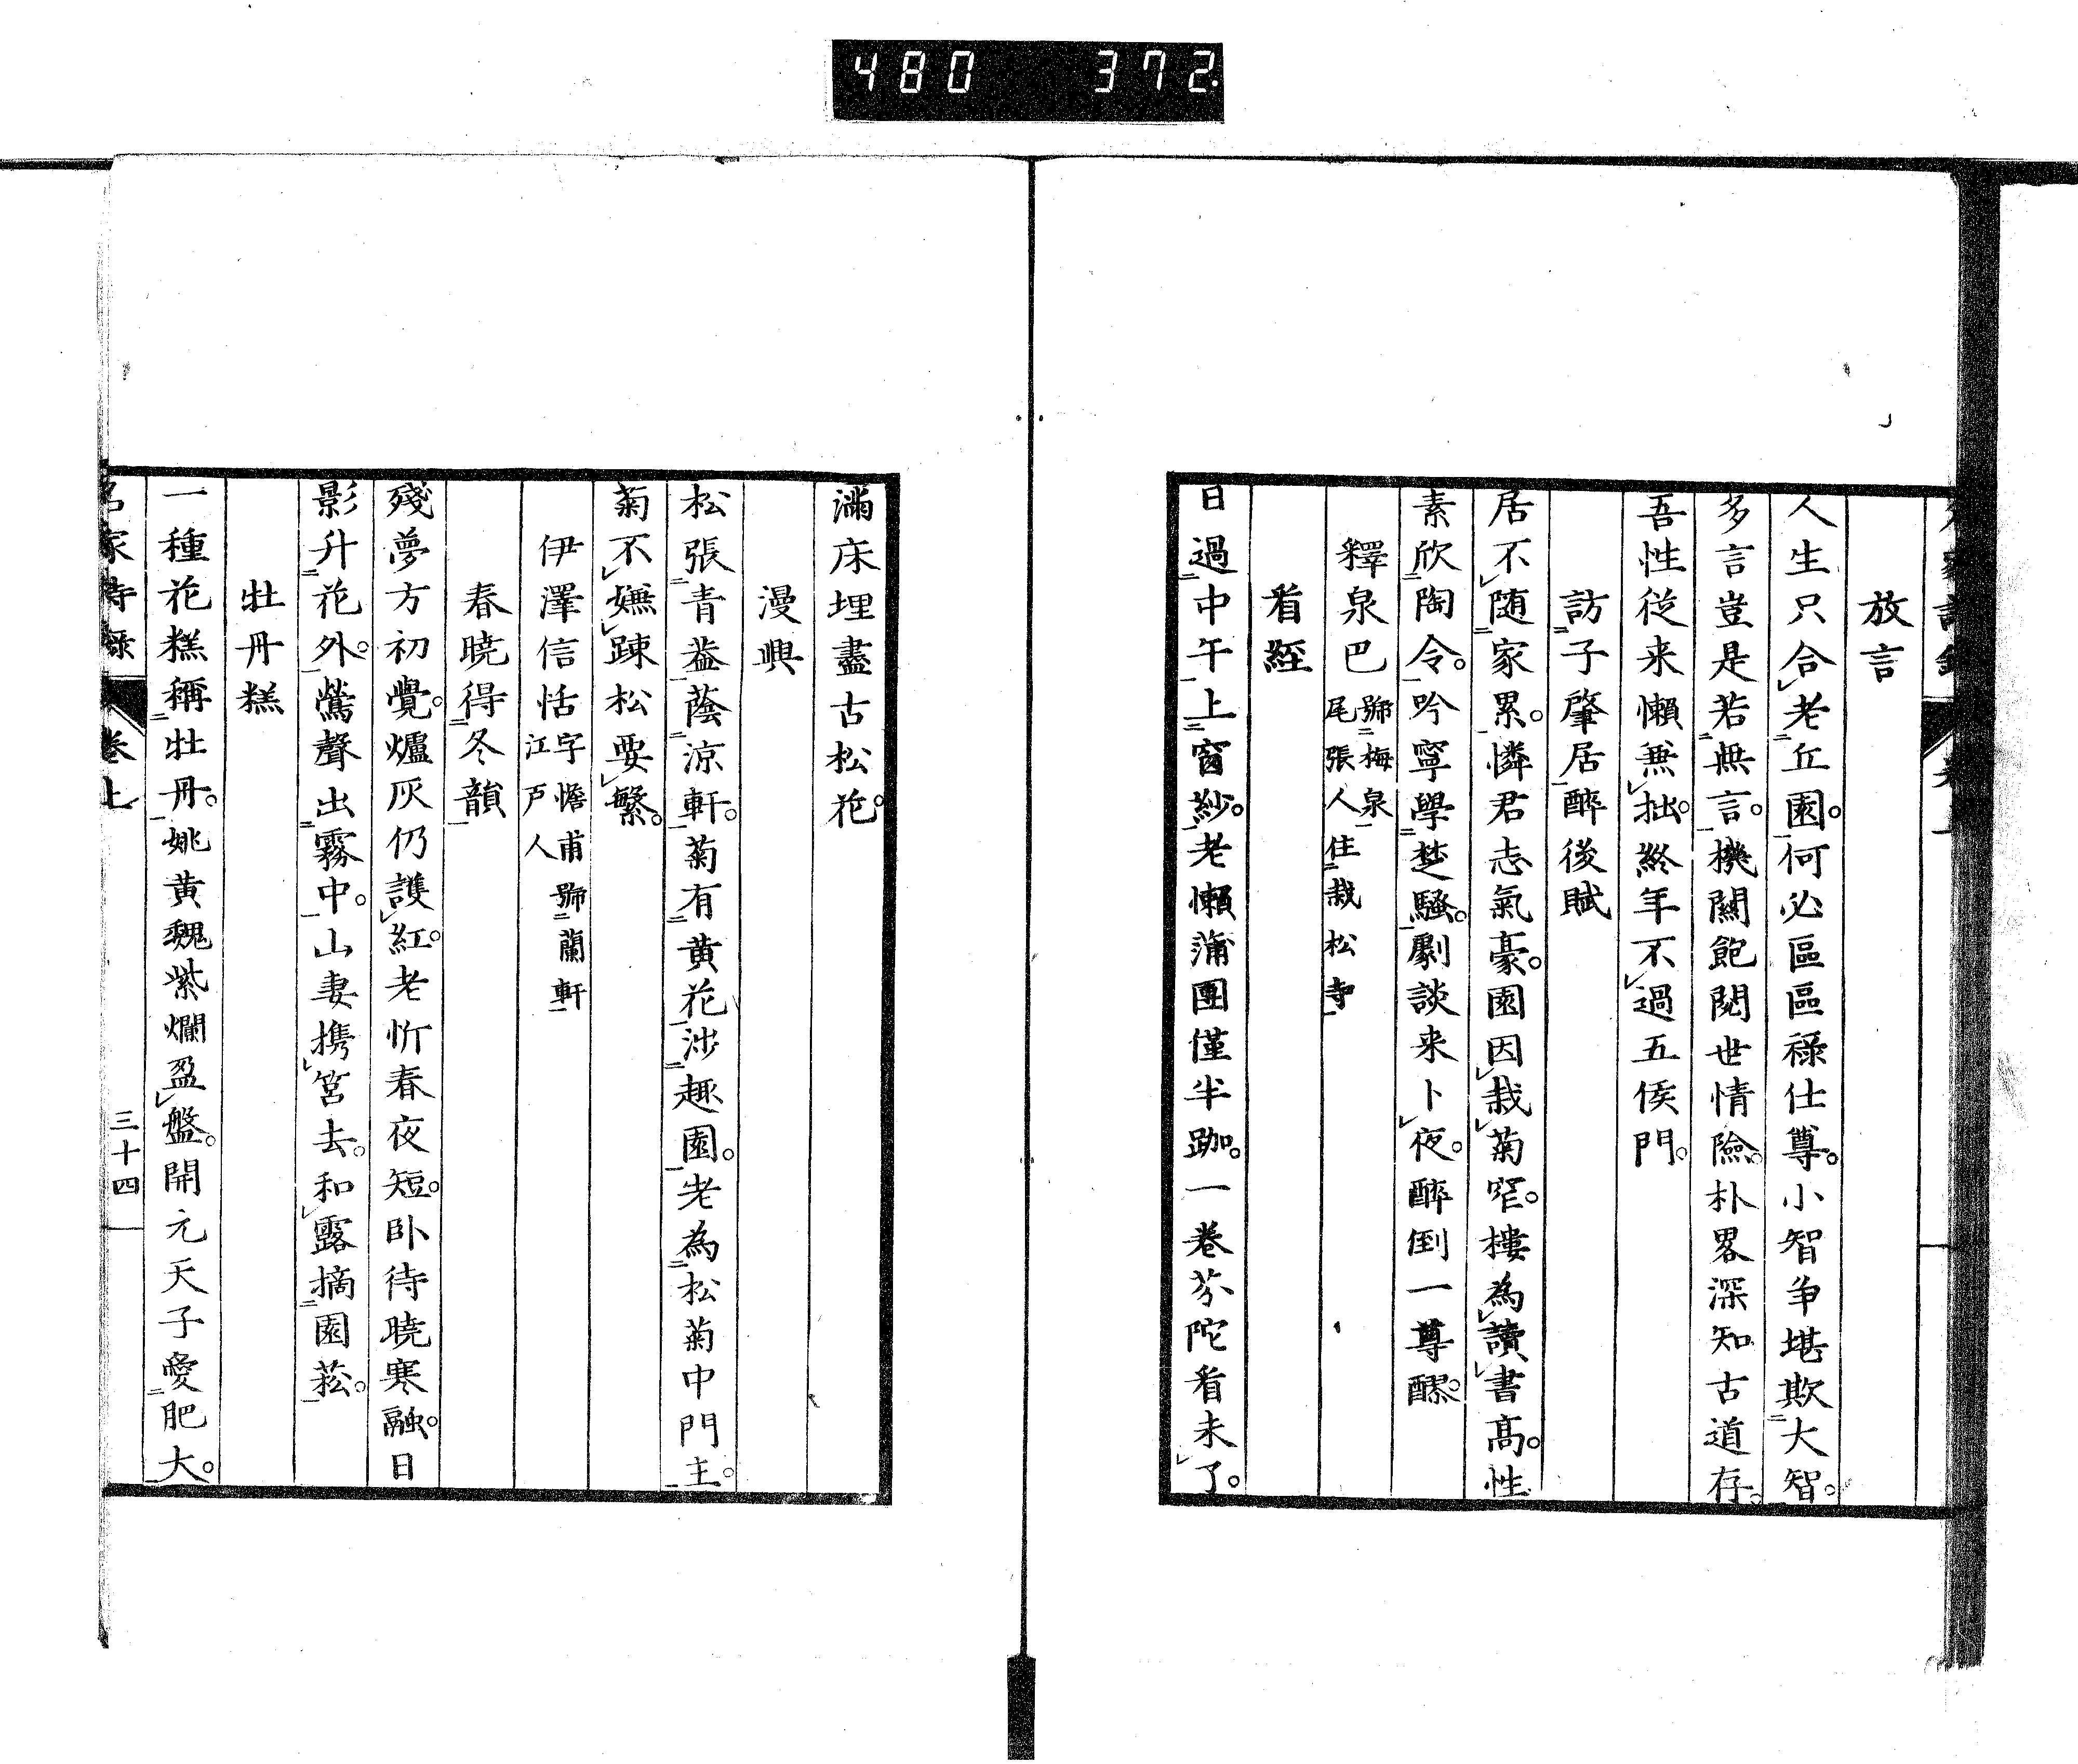 480 372
放言
人生只合老丘園。何必區區祿仕尊。小智争堪欺大智。
多言豈是若無言。機關飽閲世情險。朴畧深知古道存。
吾性從来懶兼拙。終年不過五侯門。
訪子肇居醉後賦
居不随家累。憐君志氣豪。園因栽菊窄。樓為讀書高。性
素欣陶令。吟寧學楚騷。劇談来卜夜。醉倒一尊醪。
釋泉巴 號梅泉
尾張人住栽松寺
看經
日過中午上窗紗。老懶蒲團僅半跏。一卷芬陀看未了。
滿床埋盡古松花。
漫興
松張青蓋蔭涼軒。菊有黄花渉趣園。老為松菊中門主。
菊不嫌踈松要繁。
伊澤信恬 字憺甫號蘭軒
江戸人
春曉得冬韻
殘夢方初覺。爐灰仍護紅。老忻春夜短。卧待曉寒融。日
影升花外。鶯聲出霧中。山妻携筥去。和露摘園菘。
牡丹糕
一種花糕稱牡丹。姚黄魏紫爛盈盤。開元天子愛肥大。
名家詩録 卷上 三十四